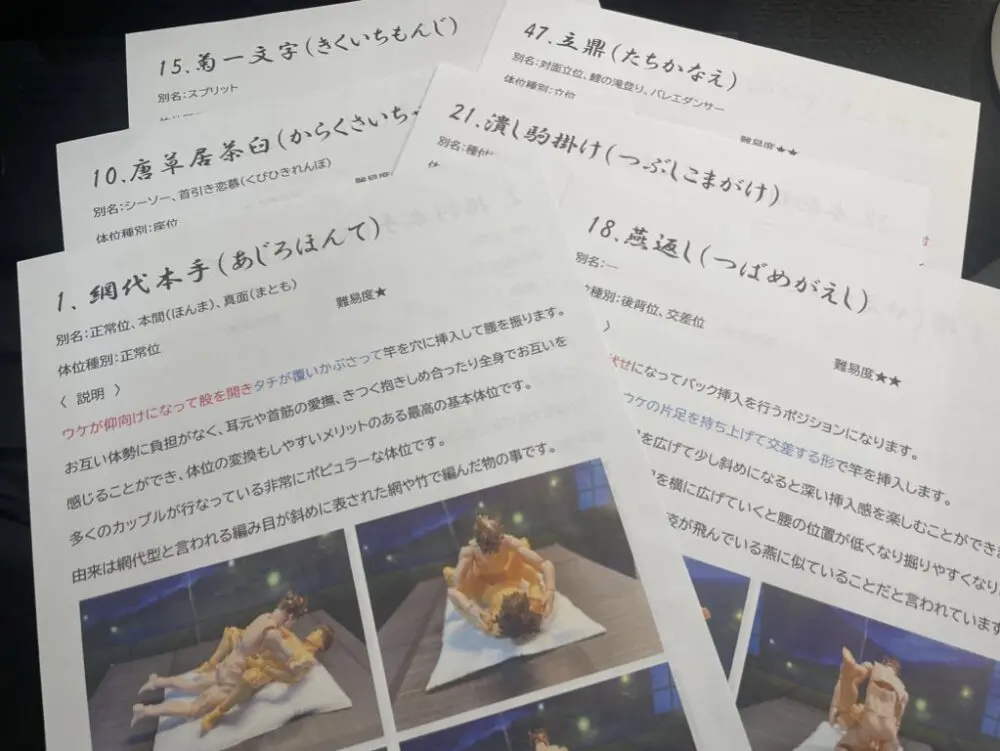 15.菊一文字(きくいちもんじ)
別名:スプリット
47.立鼎(たちかなえ)
別名:対面立位、鯉の滝登り、バレエダンサー
体位種別:立位
難易度★★
10.唐草居茶臼(からくさいち
別名:シーソー、首引き恋慕(くびひきれんぼ)
難易度
体位種別:座位
21.潰し駒掛け(つぶしこまがけ)
別名:種付
1.網代本手(あじろほんて)
別名:正常位、本間(ほんま)、真面(まとも)
難易度★
体位種別:正常位
〈 説明 〉
ウケが仰向けになって股を開きタチが覆いかぶさって竿を穴に挿入して腰を振ります。
お互い体勢に負担がなく、耳元や首筋の愛撫、きつく抱きしめ合ったり全身でお互いを
感じることができ、体位の変換もしやすいメリットのある最高の基本体位です。
多くのカップルが行なっている非常にポピュラーな体位です。
由来は網代型と言われる編み目が斜めに表された網や竹で編んだ物の事です。
18.燕返し(つばめがえし)
別名:―
種別:後背位、交差位
難易度★★
〉
伏せになってバック挿入を行うポジションになります。
ウケの片足を持ち上げて交差する形で竿を挿入します。
を広げて少し斜めになると深い挿入感を楽しむことができま
を横に広げていくと腰の位置が低くなり掘りやすくなり
姿が飛んでいる燕に似ていることだと言われています